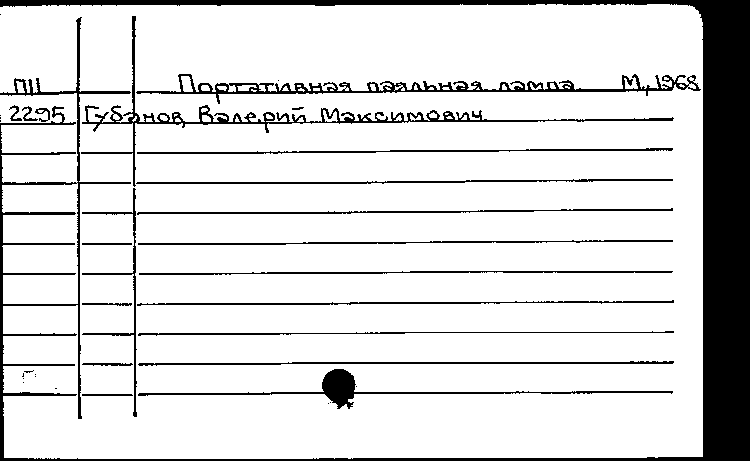 ПШ Портативная паяльная лампа. М., 1968
2295 Губанов, Валерий Максимович.